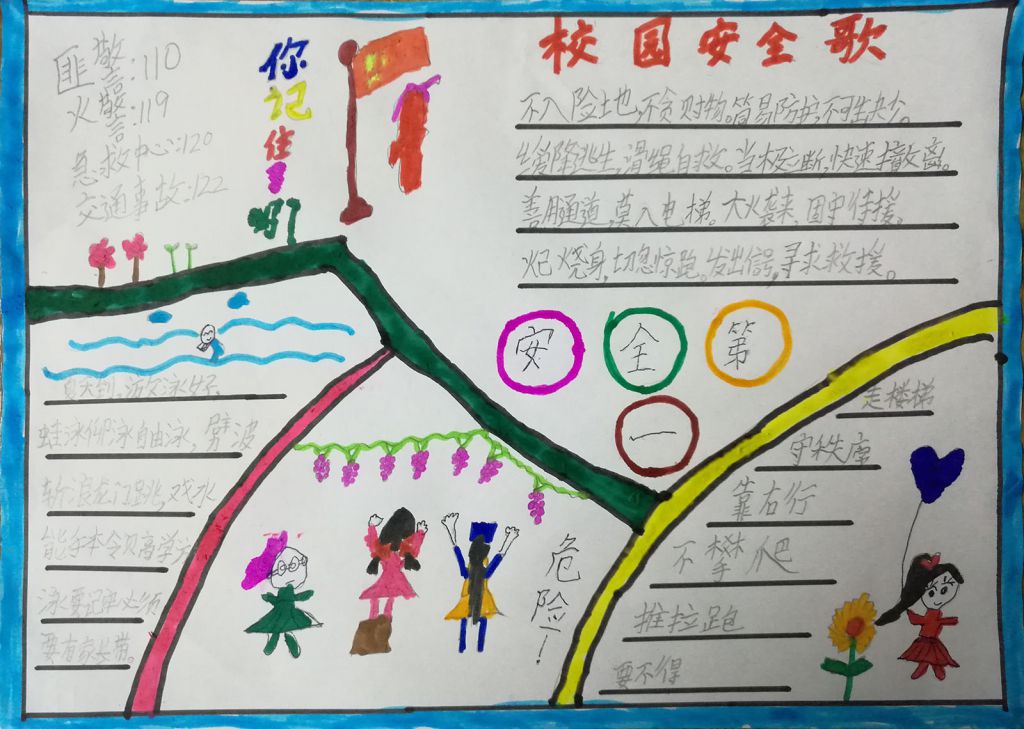 匪警:110
火警:119
急救中心:120
交通事故:122
你记住了吗
校园安全歌
不入险地,不贪财物。简易防护,不可缺少。
缓降逃生,滑绳自救。当机立断,快速撤离。
善用通道,莫入电梯。大火袭来,固守待援。
火已烧身,切忽惊跑。发出信号,寻求救援。
安全第
一
夏天到,游泳好,
蛙泳仰泳自由泳,劈波
斩浪龙门跳,戏水
能手本令贝高学
泳要记牢必须
要有家长带。
危险!
走楼梯
守秩序
靠右行
不攀爬
推拉跑
要不得